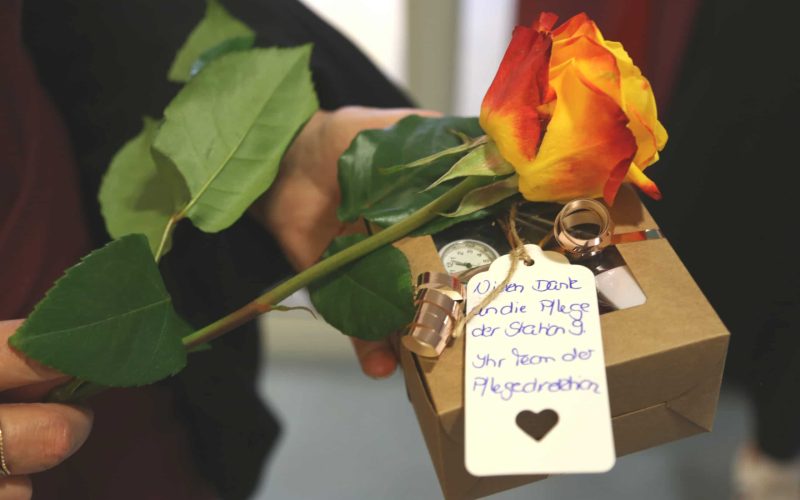 Vielen Dank
an die Pflege
der Station 9.
Ihr Team der
Pflegedirektion